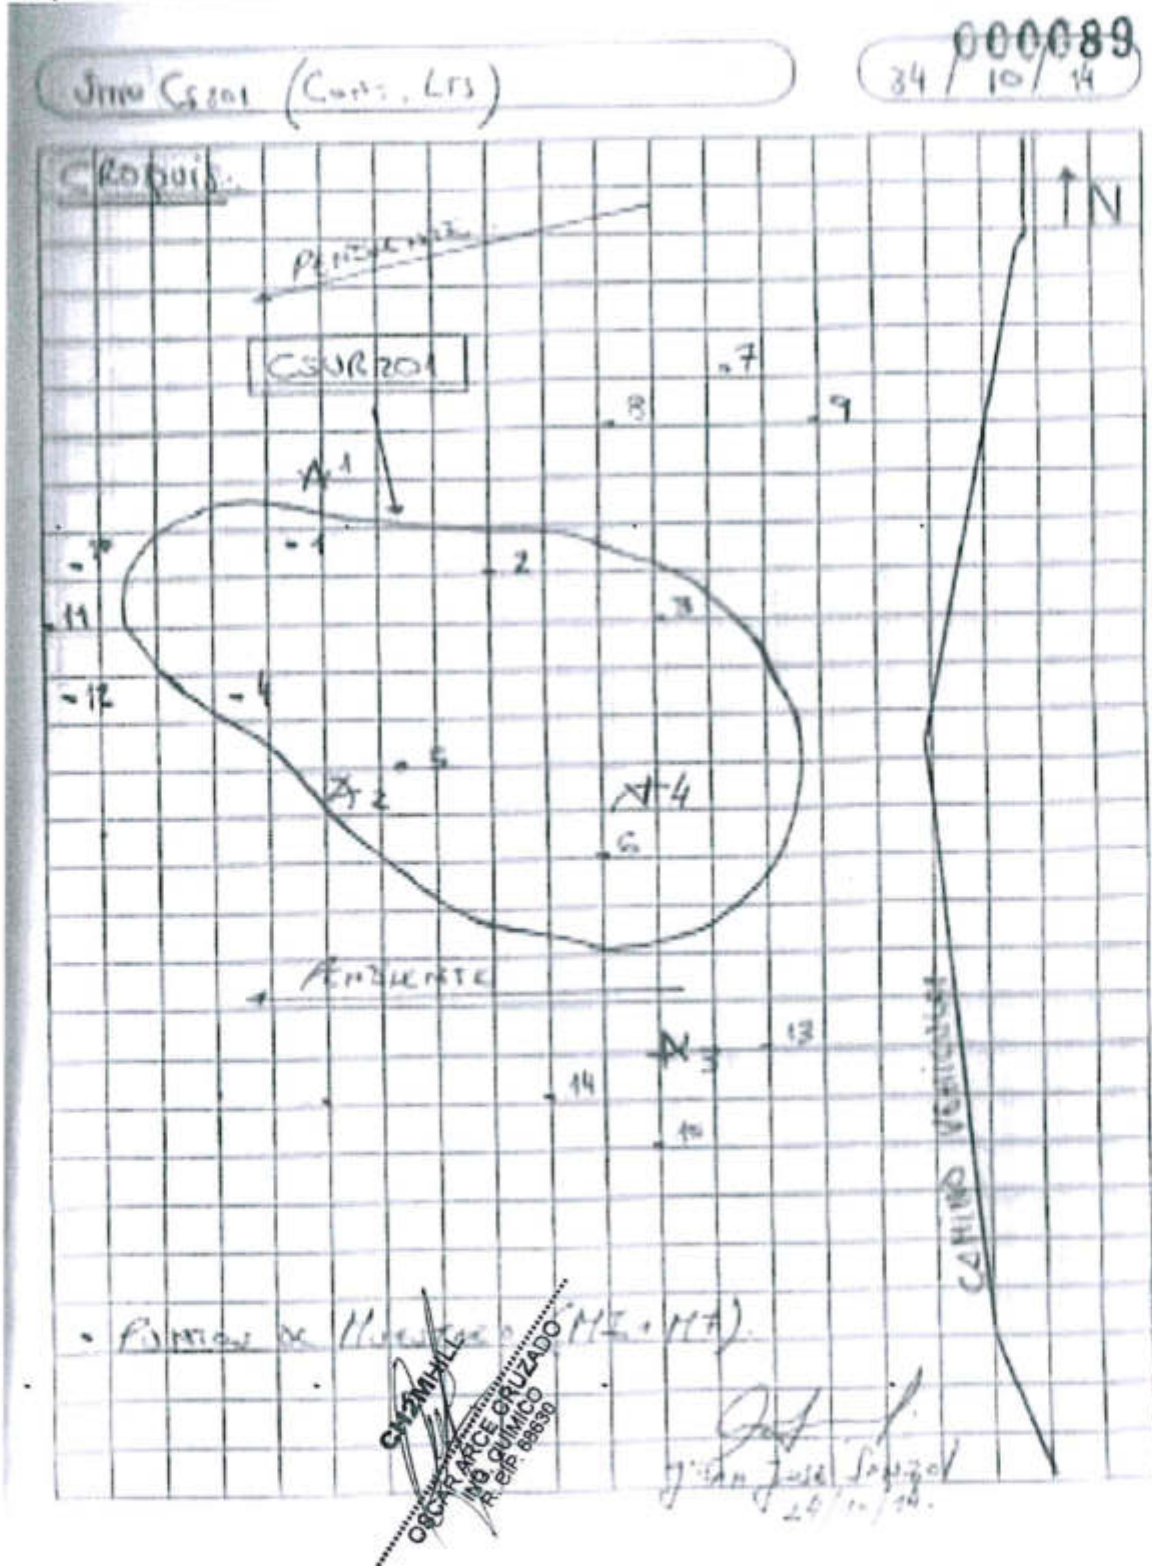 000089
(Cont. LTS)
24 / 10 / 14
CROQUIS.
N
PENDIENTE
CSUR201
7
8
9
1
1
2
3
11
12
4
5
2
4
6
PENDIENTE
3
13
14
CAMINO VEHICULAR
• Puntos de Muestreo (MI + MF).
CH2MHILL
OSCAR ARCE CRUZADO
ING. QUIMICO
R. CIP. 68630
24/10/14.